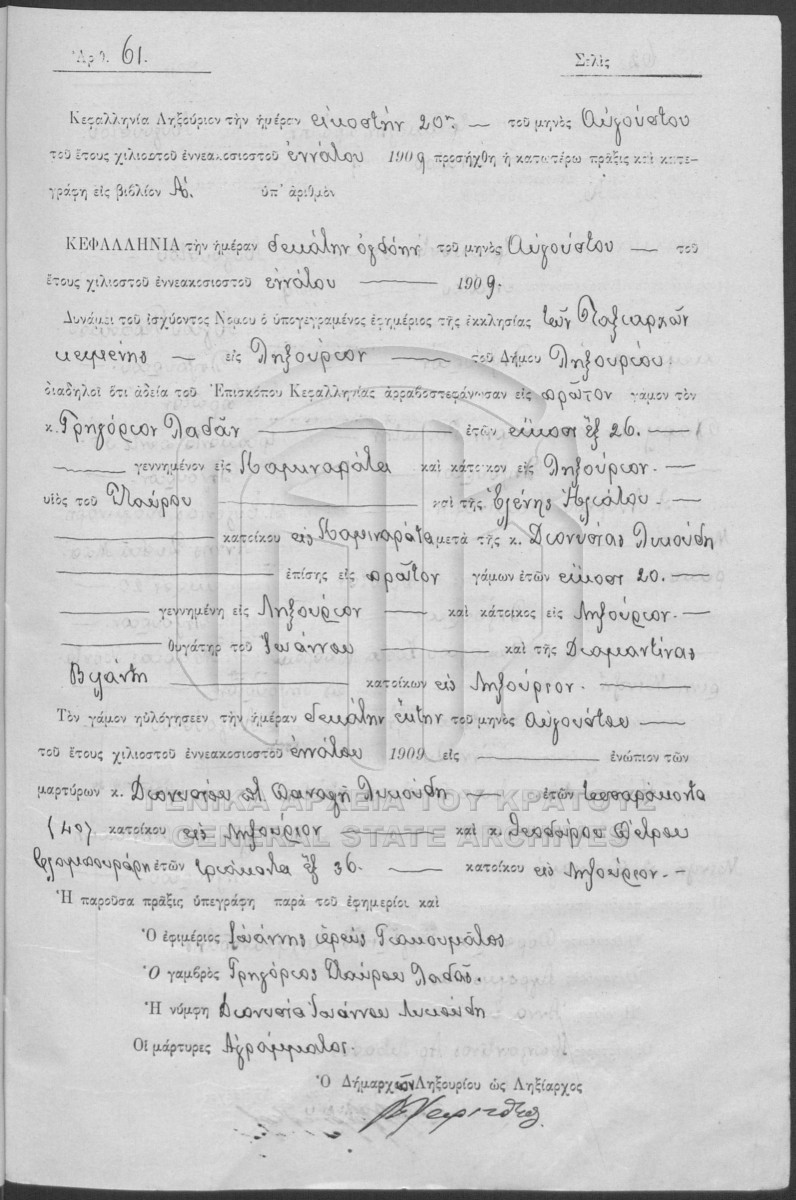 Ἀρθ. 61. Σελὶς
Κεφαλληνία Ληξούριον τὴν ἡμέραν εἰκοστὴν 20ην — τοῦ μηνὸς Αὐγούστου
τοῦ ἔτους χιλιοστοῦ ἐννεακοσιοστοῦ ἐννάτου 1909 προσήχθη ἡ κατωτέρω πρᾶξις καὶ κατε-
γράφη εἰς βιβλίον Α΄. ὑπ' ἀριθμὸν
ΚΕΦΑΛΛΗΝΙΑ τὴν ἡμέραν δεκάτην ὀγδόην τοῦ μηνὸς Αὐγούστου — τοῦ
ἔτους χιλιοστοῦ ἐννεακοσιοστοῦ ἐννάτου — 1909.
Δυνάμει τοῦ ἰσχύοντος Νόμου ὁ ὑπογεγραμένος ἐφημέριος τῆς ἐκκλησίας τῶν Ταξιαρχῶν
κειμένης — εἰς Ληξούριον — τοῦ Δήμου Ληξουρίου
διαδηλοῖ ὅτι ἀδεία τοῦ Ἐπισκόπου Κεφαλληνίας ἀρραβοστεφάνωσαν εἰς πρῶτον γάμον τὸν
κ. Γρηγόριον Λαδᾶν — ἐτῶν εἴκοσι ἕξ 26. —
— γεννημένον εἰς Καμιναράτα καὶ κάτοικον εἰς Ληξούριον. —
υἱὸς τοῦ Σταύρου — καὶ τῆς Ἑλένης —
— κατοίκου εἰς Καμιναράτα μετὰ τῆς κ. Διονυσίας Λυκούδη
— ἐπίσης εἰς πρῶτον γάμων ἐτῶν εἴκοσι 20. —
— γεννημένη εἰς Ληξούριον — καὶ κάτοικος εἰς Ληξούριον. —
— θυγάτηρ τοῦ Ἰωάννου — καὶ τῆς Διαμαντίνας
— κατοίκων εἰς Ληξούριον. —
Τὸν γάμον ηὐλόγησεεν τὴν ἡμέραν δεκάτην ἕκτην τοῦ μηνὸς Αὐγούστου —
τοῦ ἔτους χιλιοστοῦ ἐννεακοσιοστοῦ ἐννάτου 1909 εἰς — ἐνώπιον τῶν
μαρτύρων κ. Διονυσίου Παναγῆ Λυκούδη — ἐτῶν τεσσαράκοντα
(40) κατοίκου εἰς Ληξούριον — καὶ κ. Θεοδώρου Πέτρου
ἐτῶν τριάκοντα ἕξ 36. — κατοίκου εἰς Ληξούριον. —
Ἡ παροῦσα πρᾶξις ὑπεγράφη παρὰ τοῦ ἐφημερίοι καὶ
Ὁ ἐφιμέριος Ἰωάννης ἱερεὺς Γιακουμάτος
Ὁ γαμβρὸς Γρηγόριος Σταύρου Λαδᾶς.
Ἡ νύμφη Διονυσία Ἰωάννου Λυκούδη
Οἱ μάρτυρες Ἀγράμματοι.
Ὁ Δήμαρχῶν Ληξουρίου ὡς Ληξίαρχος
ΓΕΝΙΚΑ ΑΡΧΕΙΑ ΤΟΥ ΚΡΑΤΟΥΣ
GENERAL STATE ARCHIVES